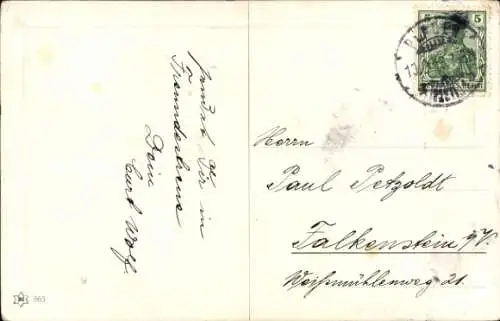 sendet Dir in
Freundestreue
Dein
Curt Wolf.
5
Herrn
Paul Petzoldt
Falkenstein i/V.
Weißmühlenweg 21.
863